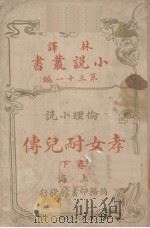 林譯
小說叢書
第三十一編
倫理小說
孝女耐兒傳
卷下
上海
商務印書館發行